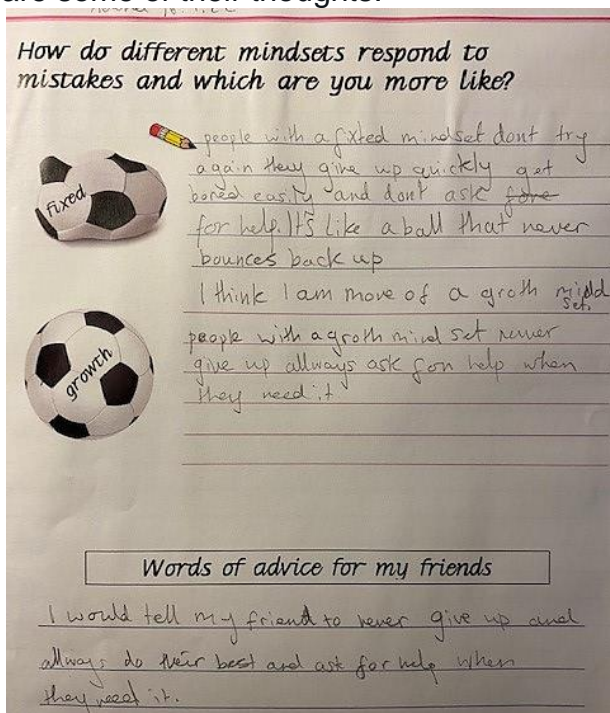 are some of their thoughts.
How do different mindsets respond to
mistakes and which are you more like?
people with a fixted mindset dont try
again they give up quickly get
bored easily and dont ask fore
for help. It's like a ball that never
bounces back up
I think I am more of a groth midd
set.
people with a groth mind set never
give up allways ask for help when
they need it
fixed
growth
Words of advice for my friends
I would tell my friend to never give up and
allways do their best and ask for help when
they need it.